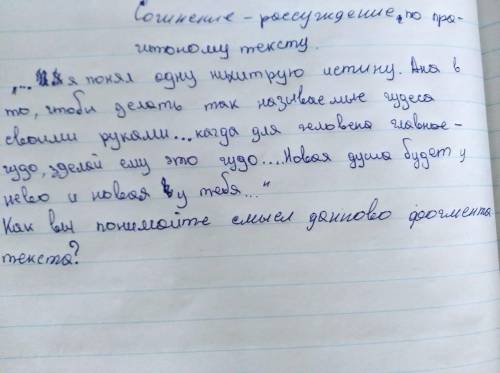 Сочинение - рассуждение, по про-
читоному тексту.
„... я понял одну нихитрую истину. Ана в
то, чтоби делать так називаемие чудеса
своими руками... кагда для человека главное -
чудо, зделай ему это чудо.... Новая душа будет у
нево и новая у тебя..."
Как вы понимайте смысл данново фрогмента
текста?